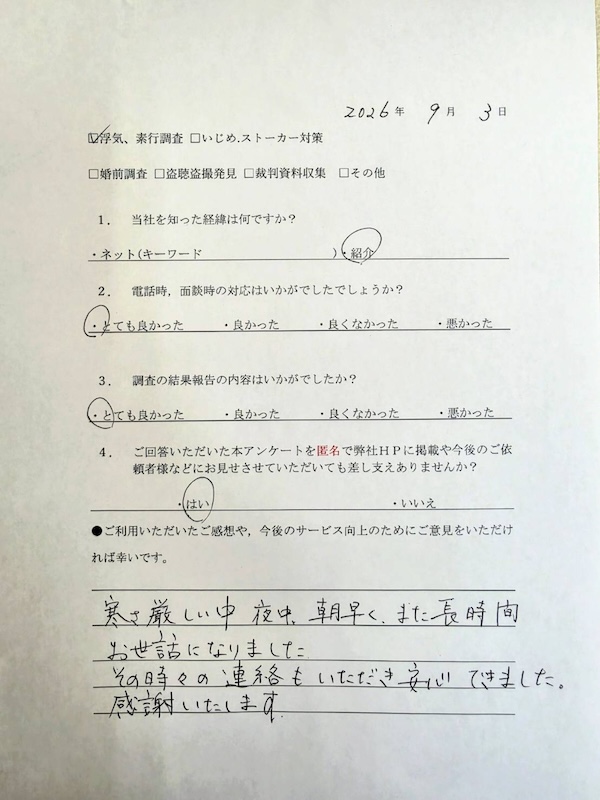 2026年 9月 3日
☑浮気、素行調査 □いじめ.ストーカー対策
□婚前調査 □盗聴盗撮発見 □裁判資料収集 □その他
１． 当社を知った経緯は何ですか？
・ネット(キーワード ）・紹介
２． 電話時，面談時の対応はいかがでしたでしょうか？
・とても良かった ・良かった ・良くなかった ・悪かった
３． 調査の結果報告の内容はいかがでしたか？
・とても良かった ・良かった ・良くなかった ・悪かった
４． ご回答いただいた本アンケートを匿名で弊社ＨＰに掲載や今後のご依
頼者様などにお見せさせていただいても差し支えありませんか？
・はい ・いいえ
●ご利用いただいたご感想や，今後のサービス向上のためにご意見をいただけ
れば幸いです。
寒さ厳しい中 夜中、朝早く、また長時間
お世話になりました
その時々の連絡もいただき安心できました。
感謝いたします.